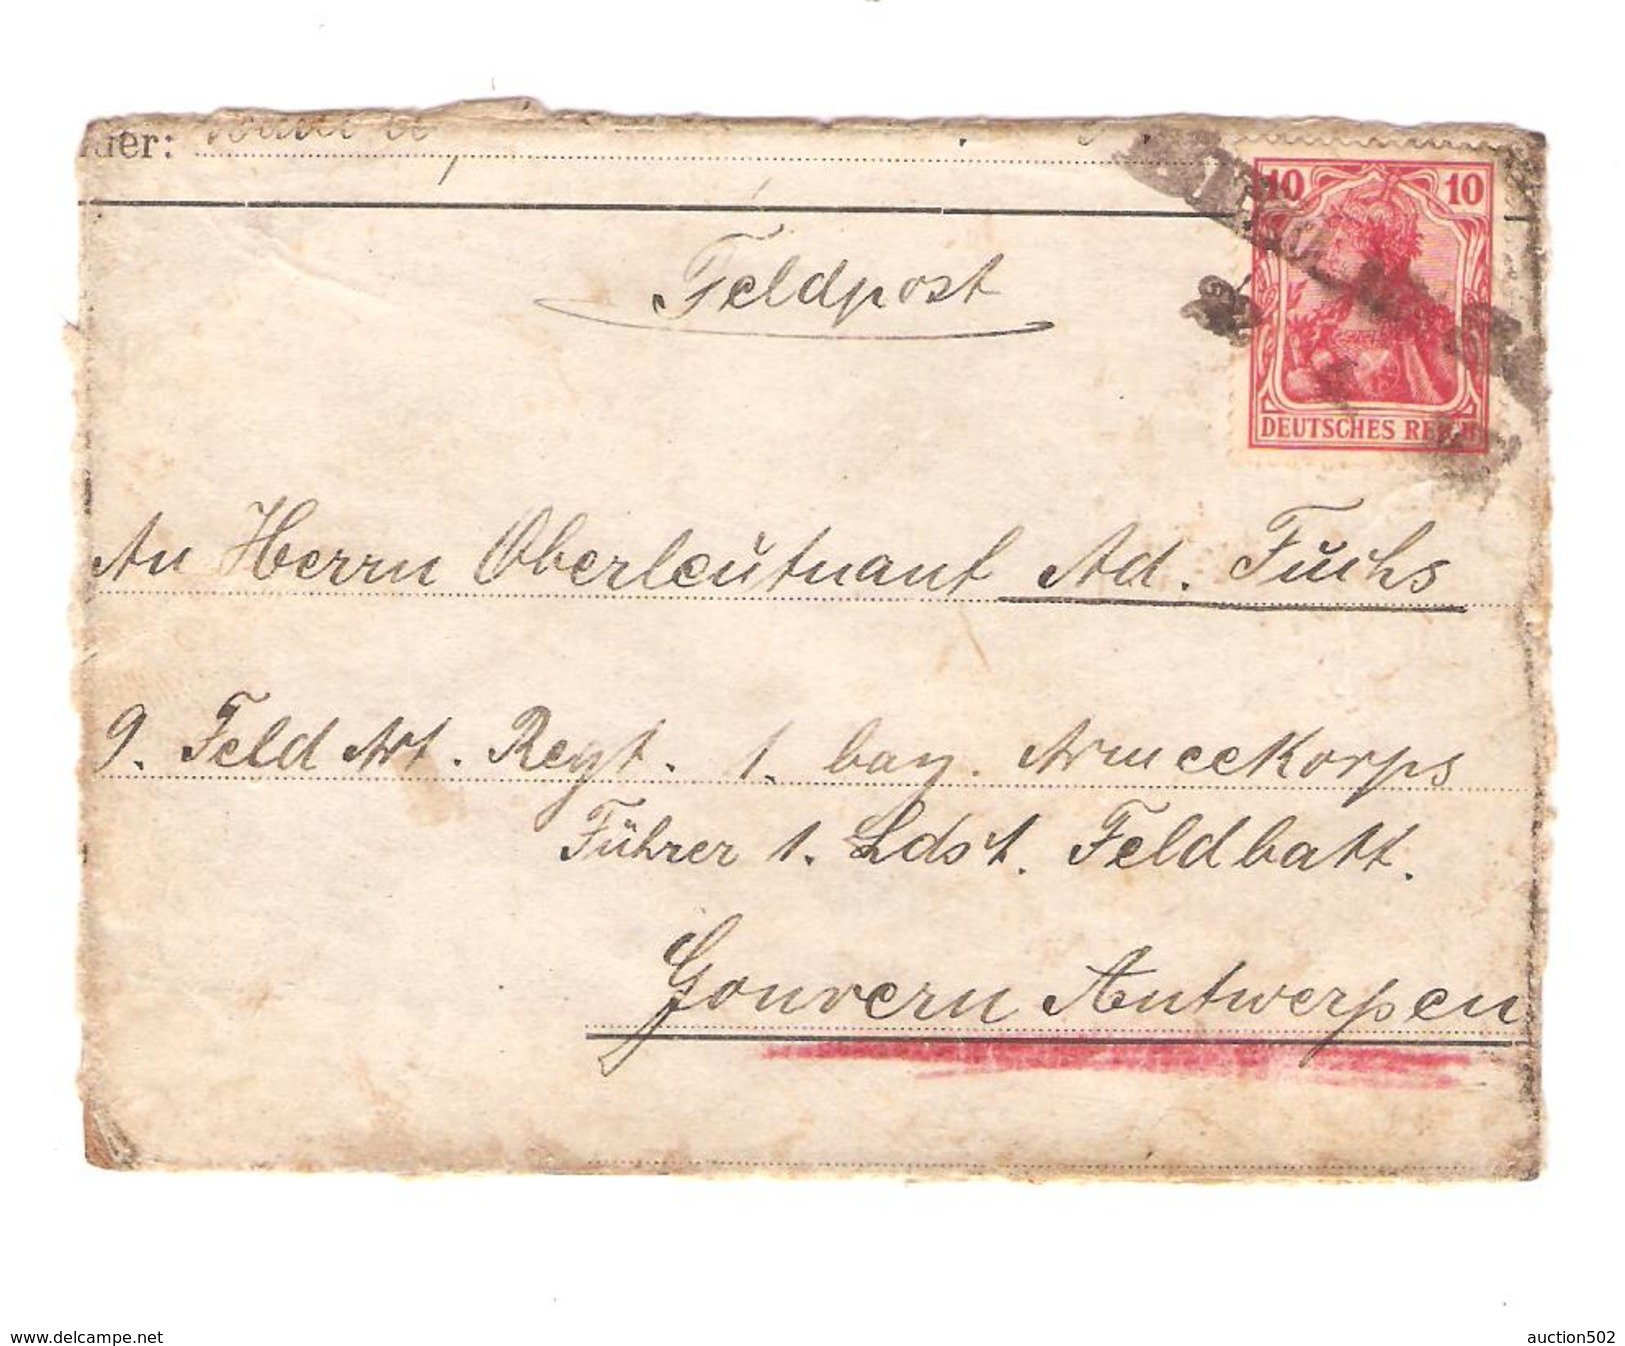 der:
Feldpost
10 10
DEUTSCHES REICH
An Herrn Oberleŭtnant Ad. Fŭchs
9. Feld Art. Regt. 1. bay. Armeekorps
Führer 1. Ldst. Feldbatt.
Gouvern Antwerpen
www.delcampe.net
auction502